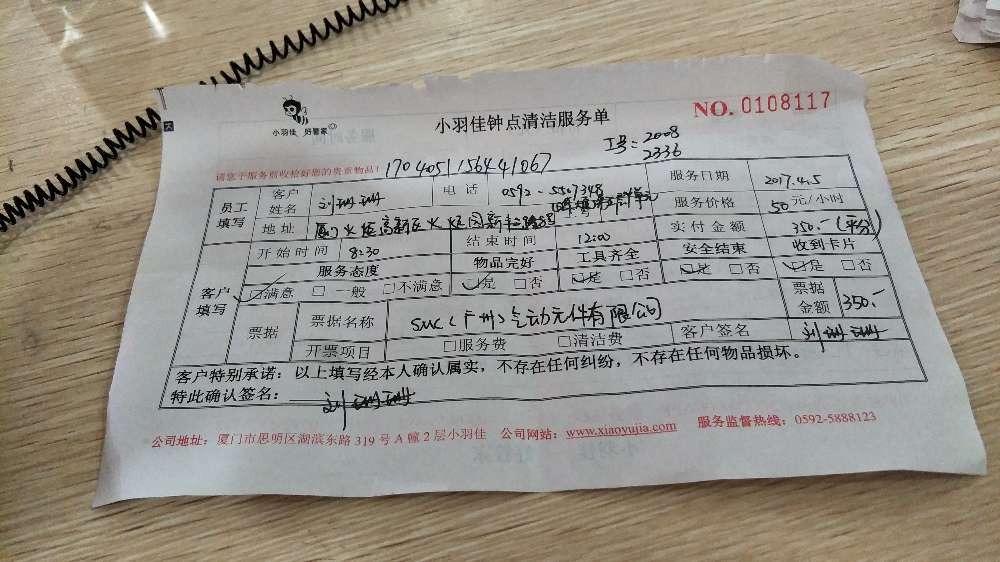 小羽佳 好管家
小羽佳钟点清洁服务单
NO. 0108117
工号：2008
2336
请您于服务前收拾好您的贵重物品！
1704051156441067
员工填写
客户姓名
刘珊珊
电话
0592-5507348
服务日期
2017.4.5
地址
厦门火炬高新区火炬园新丰三路
服务价格
50 元/小时
开始时间
8:30
结束时间
12:00
实付金额
350.-（平分）
客户填写
服务态度
物品完好
工具齐全
安全结束
收到卡片
☑满意 □ 一般 □不满意
☑是 □否
☑是 □否
☑是 □否
☑是 □否
票据
票据名称
SMC（广州）气动元件有限公司
票据金额
350.-
开票项目
□服务费 □清洁费
客户签名
刘珊珊
客户特别承诺：以上填写经本人确认属实，不存在任何纠纷，不存在任何物品损坏。
特此确认签名：
刘珊珊
公司地址：厦门市思明区湖滨东路 319 号 A 幢 2 层小羽佳 公司网站：www.xiaoyujia.com 服务监督热线：0592-5888123